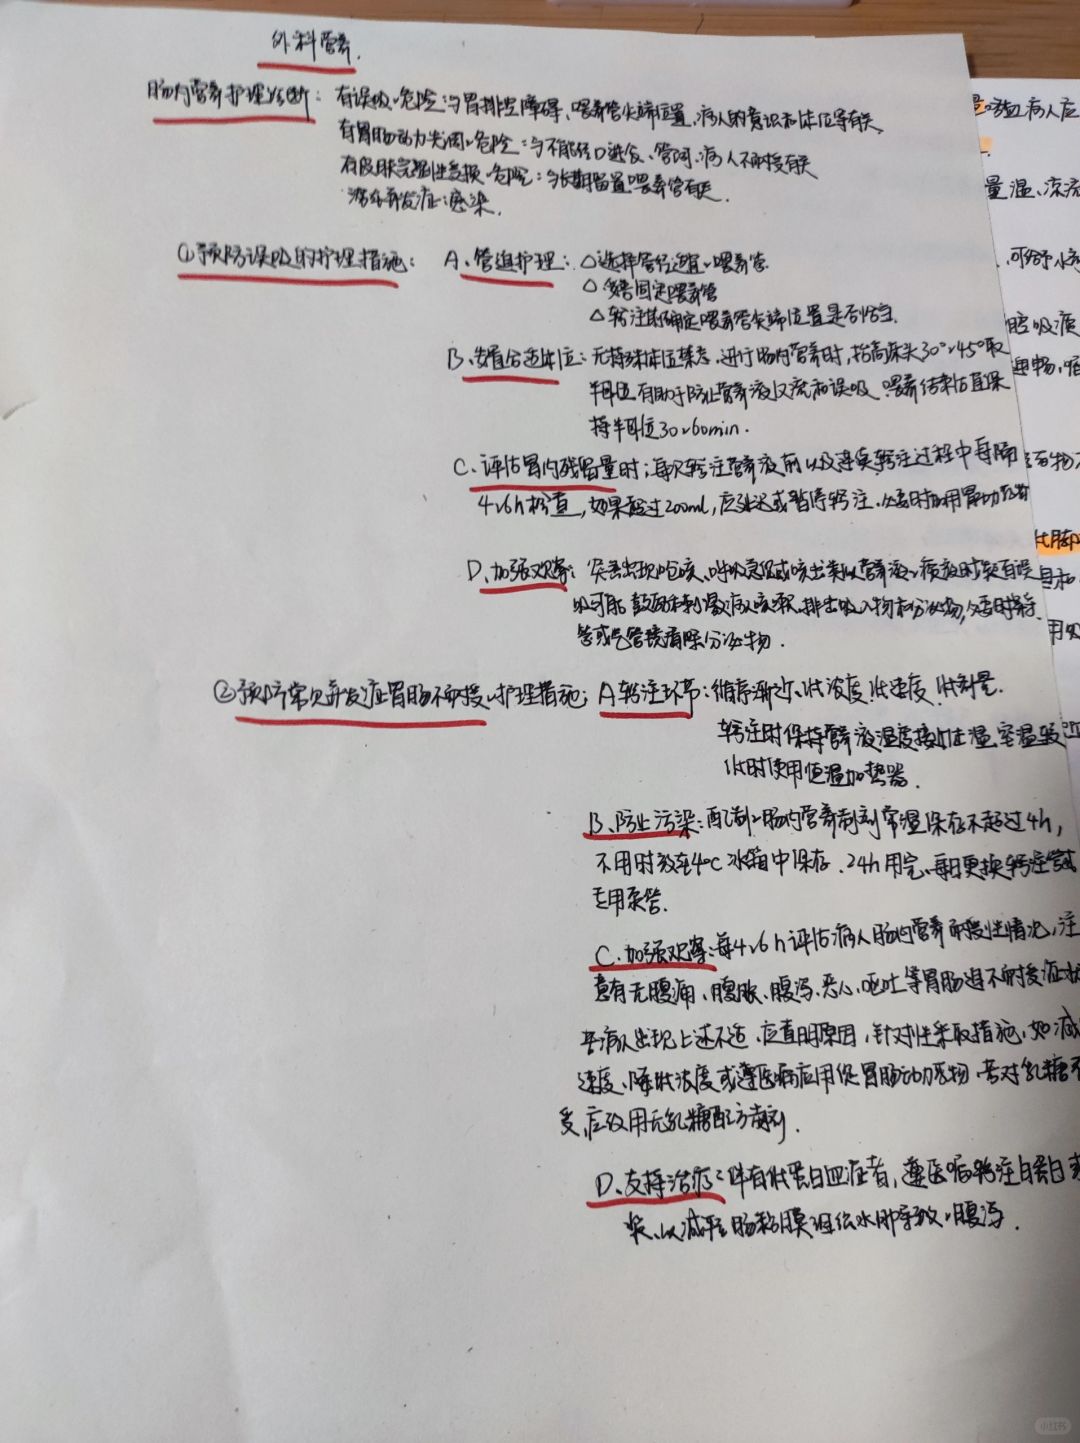 外科营养.
肠内营养护理诊断: 有误吸的危险:与胃排空障碍、喂养管尖端位置、病人的意识和体位等有关
有胃肠动力失调的危险:与不能经口进食、管饲、病人不耐受有关
有皮肤完整性受损的危险:与长期留置喂养管有关
潜在并发症:感染.
①预防误吸的护理措施: A、管道护理: △选择管径适宜的喂养管
△妥善固定喂养管
△输注前确定喂养管尖端位置是否恰当.
B、安置合适体位:无特殊体位禁忌,进行肠内营养时,抬高床头30°~45°取
半卧位有助于防止营养液反流和误吸、喂养结束后宜保
持半卧位30~60min.
C、评估胃内残留量时:每次输注营养液前以及连续输注过程中每隔
4~6h检查,如果超过200ml,应延迟或暂停输注,必要时加用胃动力药
D、加强观察: 突然出现呛咳、呼吸急促或咳出类似营养液的痰液时疑有误
吸可能 鼓励和刺激病人咳嗽,排出吸入物和分泌物,必要时经
管或气管镜清除分泌物.
②预防常见并发症胃肠不耐受的护理措施: A输注环节:循序渐近、低浓度.低速度.低剂量.
输注时保持营养液温度接近体温,室温较
低时使用恒温加热器.
B、防止污染:配制的肠内营养制剂常温保存不超过4h,
不用时放在4°C冰箱中保存.24h用完,每日更换输注管或
专用泵管.
C.加强观察:每4~6h评估病人肠内营养耐受性情况,注
意有无腹痛、腹胀、腹泻、恶心、呕吐等胃肠道不耐受症状
若病人出现上述不适,应查明原因,针对性采取措施,如减
速度、降低浓度或遵医嘱应用促胃肠动力药物,若对乳糖不
受,应改用无乳糖配方制剂.
D、支持治疗:伴有低蛋白血症者,遵医嘱输注白蛋白或
浆,以减轻肠粘膜组织水肿导致的腹泻.
病人应
量温、凉流
、可给予
腔吸痰
用
小红书